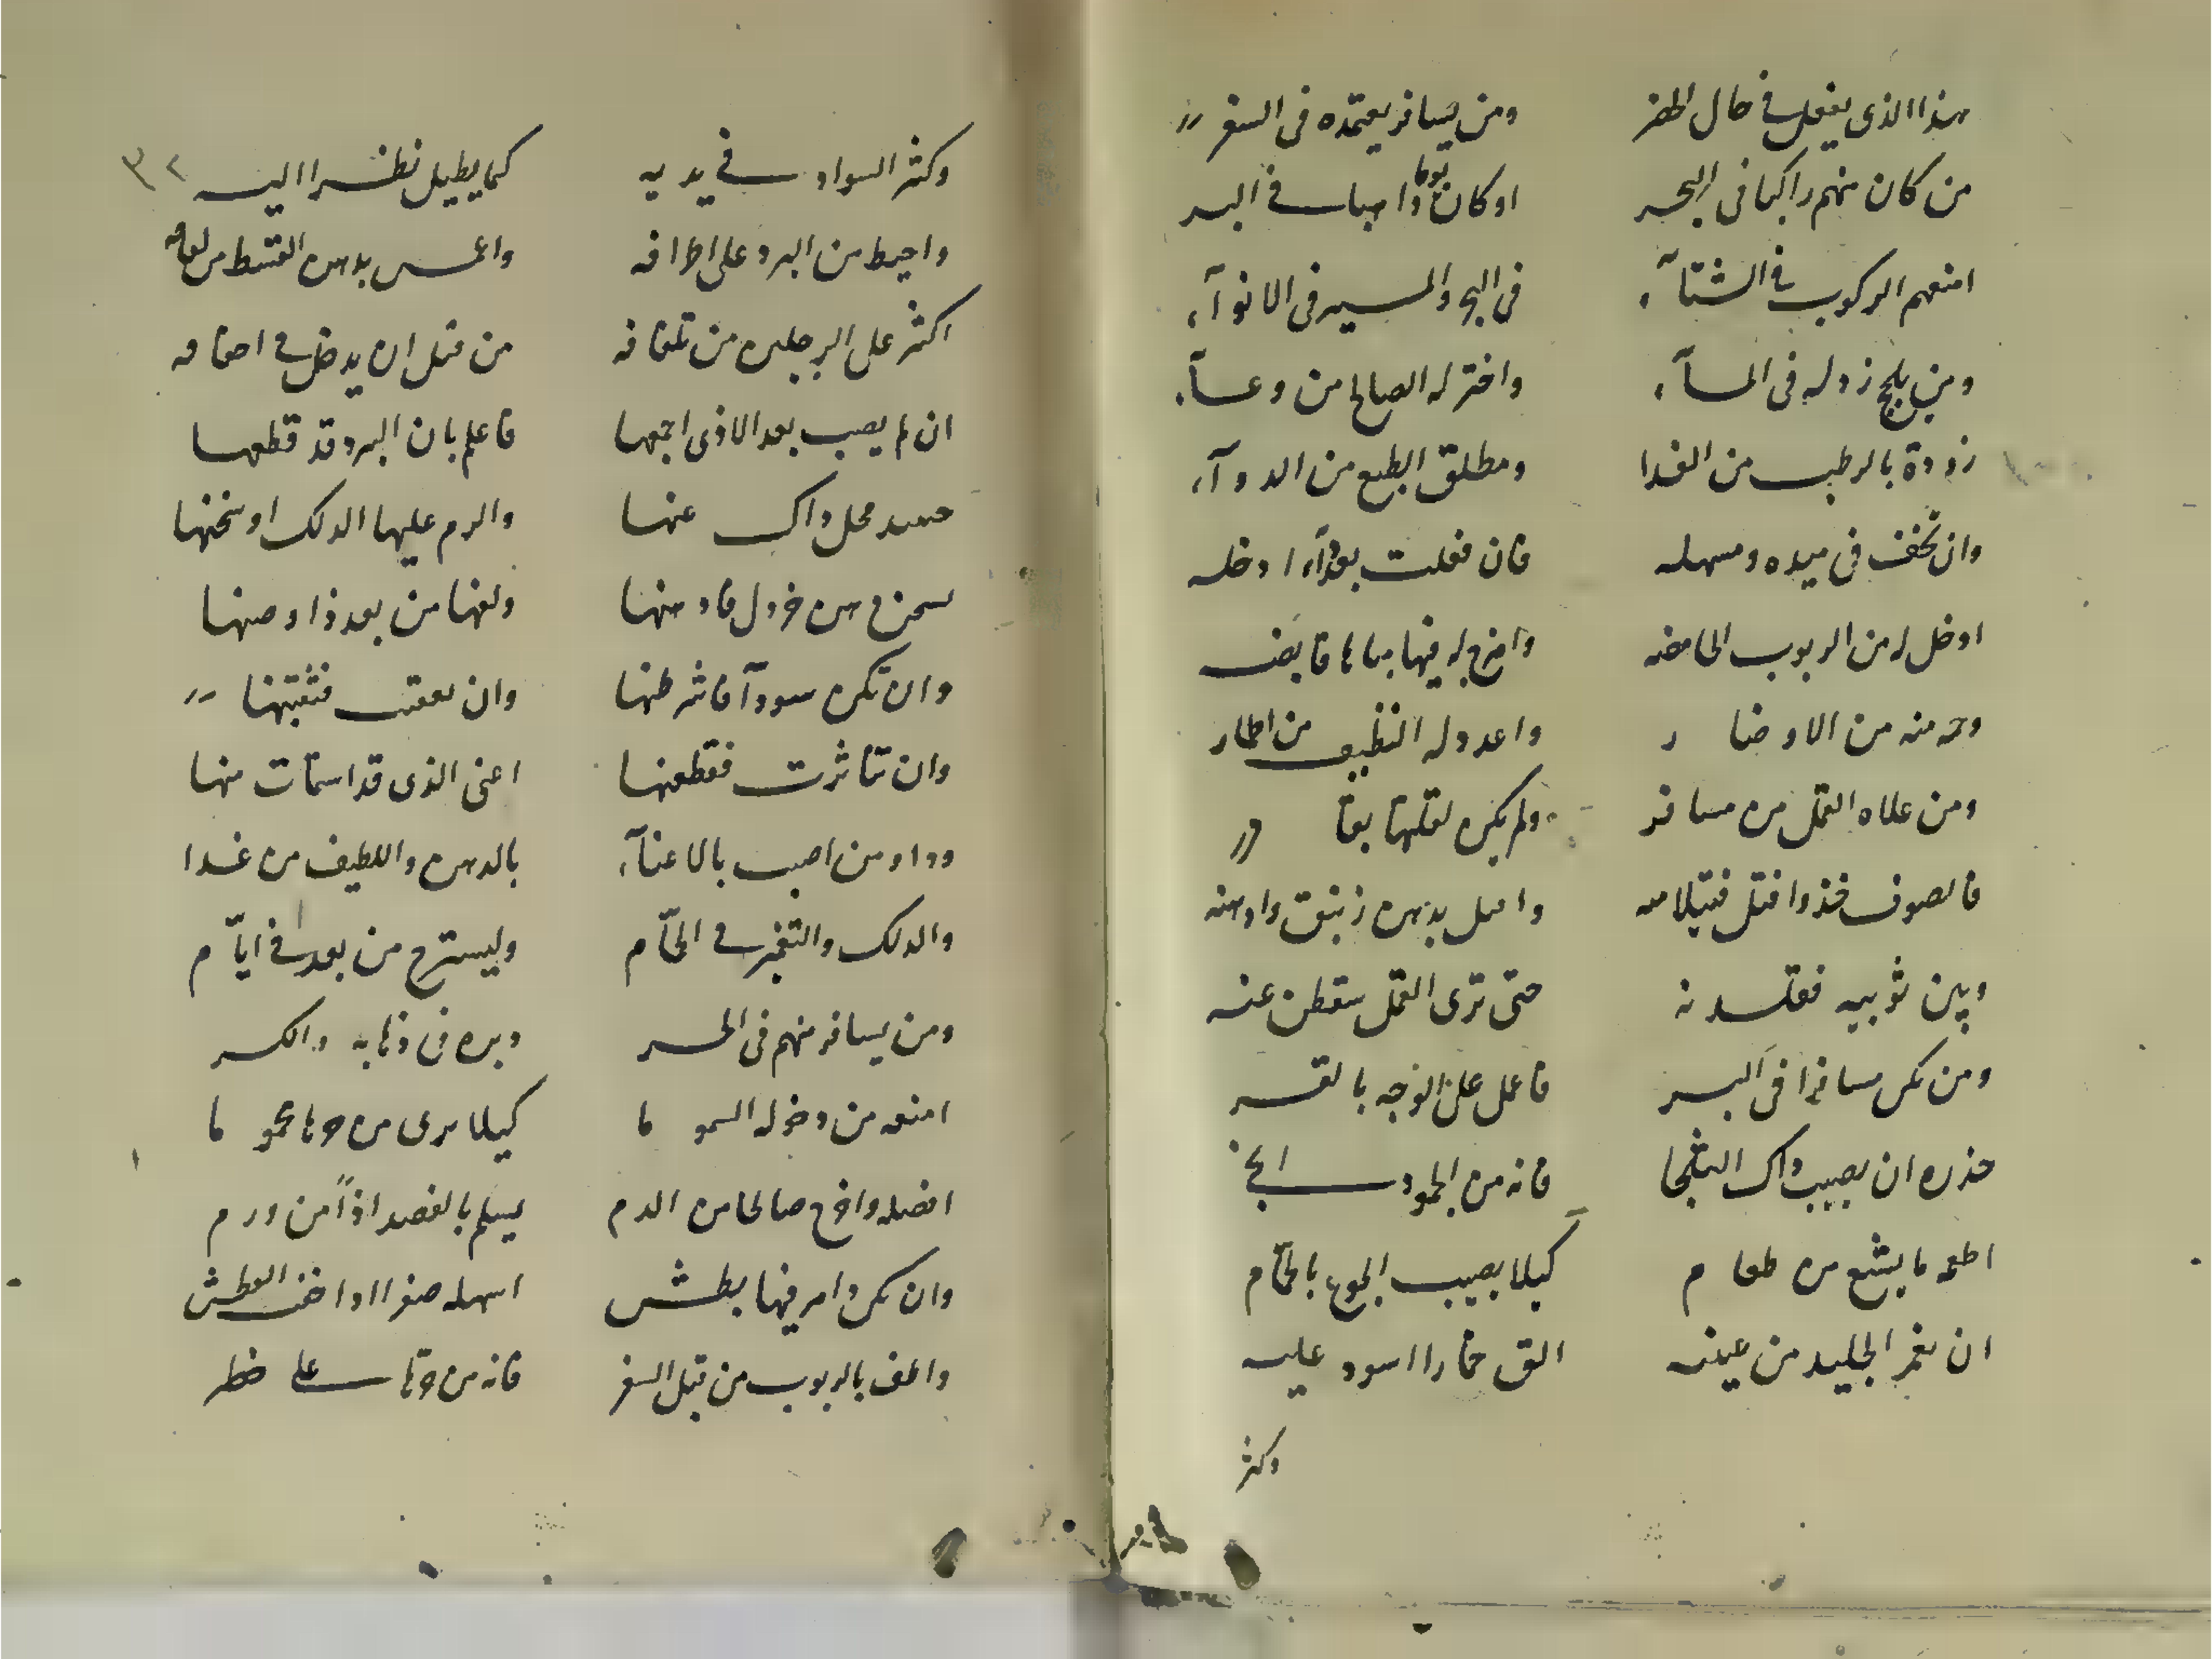 هذا الذی یفعل فی حال الحضر ومن یسافر یعتمده فی السفر
من کان منهم راکبا فی البحر او کان یوما ذاهبا فی البر
امنعهم الرکوب فی الشتآء فی البحر والمسیر فی الانوآء
ومن یلج زد له فی المآء واختر له الصالح من وعآء
زوده بالرطب من الغذا ومطلق الطبع من الدوآء
وان تخف فی میده ومسهله فان فعلت بعد ادخله
ادخل له من الربوب الحامضه وامزج له فیها میاها قابضه
وحمه منه من الاوضار واعدد له النظیف من اطمار
ومن علاه القمل من مسافر ولم یکن لقتلها بقادر
فالصوف خذ وافتل فتیلا منه وامیل بدهن زنبق وادهنه
وبین ثوبیه فقلدنه حتی تری القمل سقطن عنه
ومن یکن مسافرا فی البر فاعمل علی الوجه بالقسر
حذره ان یصیب ذاک الثلجا فانه من الجمود
اطعمه ما یشبع من طعام کیلا یصیب الجوع بالحمآم
ان یغمر الجلید من عینیه الق خمارا اسود علیه
وکثر
وکثر السواد فی یدیه کما یطیل نظرا الیه
واحیط من البرد علی اطرافه واغمس بدهن القسط من لفافه
اکثر علی الرجلین من تلفافه من قبل ان یدخل فی اخفافه
ان لم یصب بعد الاذی اجمعها فاعلم بان البرد قد قطعها
حینئذ محل ذاک عنها والزم علیها الدلک او سخنها
سخن دهن خردل فادهنها ولفها من بعد ذا وصنها
وان تکن سودآ فاشرطنها وان تعفنت فنقبتنها
وان تناثرت فقطعنها اعنی الذی قد استمات منها
وداو من اصیب بالاعیآء بالدهن واللطیف من غذا
والدلک والتغمیز فی الحمآم ولیسترح من بعد فی ایآم
ومن یسافر منهم فی الحر وبره فی ذهابه والکر
امنعه من دخوله السموما کیلا یری من حرها محموما
افصله واخرج صالحا من الدم یسلم بالفصد اذا من ورم
وان یکن ذامر فیها بطش اسهله صفرا اذا خفت العطش
والطف بالربوب من قبل السفر فانه من حرها علی خطر
٣٢